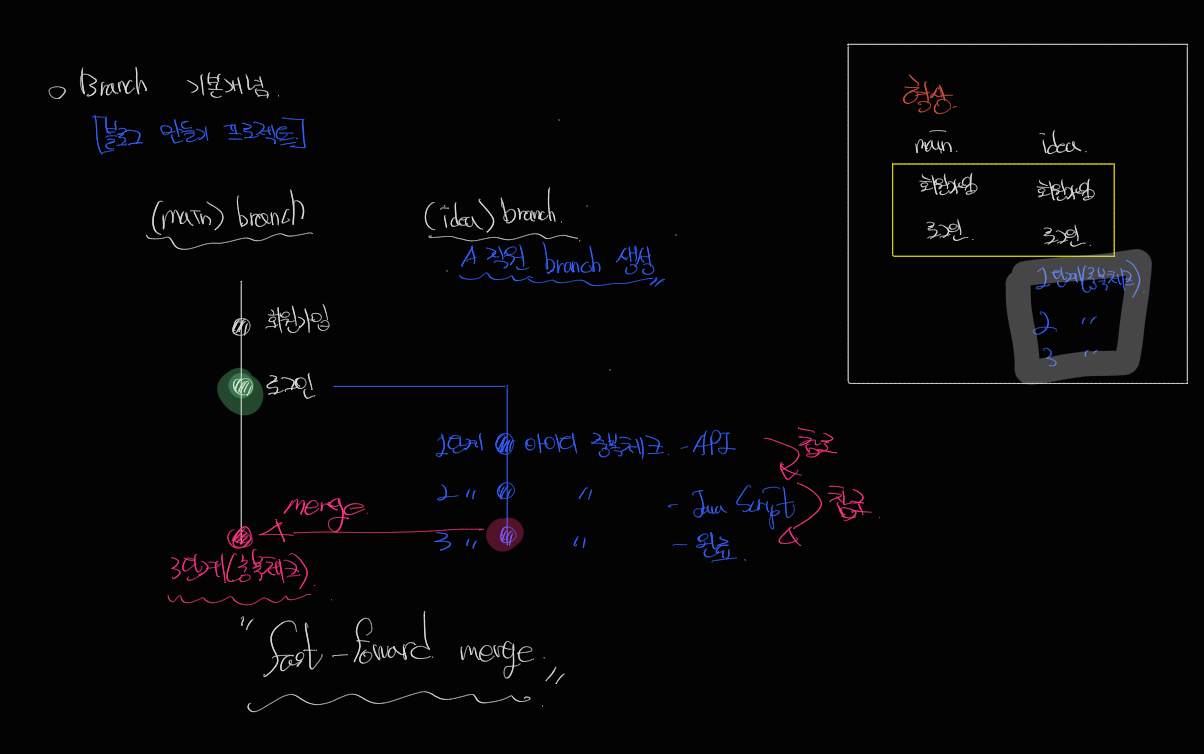 Branch 기본개념.
[블로그 만들기 프로젝트]
(main) branch
(idea) branch.
A 직원 branch 생성
회원가입
로그인
1단계 아이디 중복체크 - API
2 〃 〃 - Java Script
3 〃 〃 - 완료
merge
3단계(중복체크)
" fast-foward merge. "
형상
main. idea.
회원가입 회원가입
로그인. 로그인.
1단계(중복체크)
2 〃
3 〃